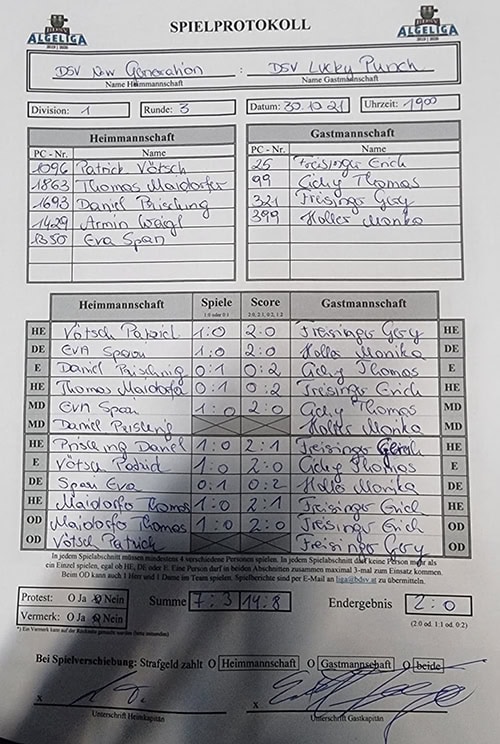 ALGELIGA
SPIELPROTOKOLL
ALGELIGA
DSV New Generation : DSV Lucky Punch
Name Heimmannschaft Name Gastmannschaft
Division: 1 Runde: 3 Datum: 30.10.21 Uhrzeit: 1900
Heimmannschaft Gastmannschaft
PC - Nr. Name PC - Nr. Name
1096 Patrick Vötsch 25 Freisinger Erich
1863 Thomas Maidorfer 99 Cichy Thomas
1693 Daniel Prischnig 321 Freisinger Gery
1429 Armin Weigl 399 Holler Monika
1350 Eva Span
Heimmannschaft Spiele Score Gastmannschaft
1:0 oder 0:1 2:0, 2:1, 0:2, 1:2
HE Vötsch Patrick 1:0 2:0 Freisinger Gery HE
DE Eva Span 1:0 2:0 Holler Monika DE
E Daniel Prischnig 0:1 0:2 Cichy Thomas E
HE Thomas Maidorfer 0:1 0:2 Freisinger Erich HE
MD Eva Span 1:0 2:0 Cichy Thomas MD
MD Daniel Prischnig Holler Monika MD
HE Prischnig Daniel 1:0 2:1 Freisinger HE
E Vötsch Patrick 1:0 2:0 Cichy Thomas E
DE Span Eva 0:1 0:2 Holler Monika DE
HE Maidorfer Thomas 1:0 2:1 Freisinger Erich HE
OD Maidorfer Thomas 1:0 2:0 Freisinger Erich OD
OD Vötsch Patrick Freisinger Gery OD
In jedem Spielabschnitt müssen mindestens 4 verschiedene Personen spielen. In jedem Spielabschnitt darf keine Person mehr als
ein Einzel spielen, egal ob HE, DE oder E. Eine Person darf in beiden Abschnitten zusammen maximal 3-mal zum Einsatz kommen.
Beim OD kann auch 1 Herr und 1 Dame im Team spielen. Spielberichte sind per E-Mail an liga@bdsv.at zu übermitteln.
Protest: O Ja O Nein Summe 7:3 14:8 Endergebnis 2:0
Vermerk: O Ja O Nein (2:0 od. 1:1 od. 0:2)
*) Ein Vermerk kann auf der Rückseite gemacht werden (bitte umwenden)
Bei Spielverschiebung: Strafgeld zahlt O Heimmannschaft O Gastmannschaft O beide
x x
Unterschrift Heimkapitän Unterschrift Gastkapitän